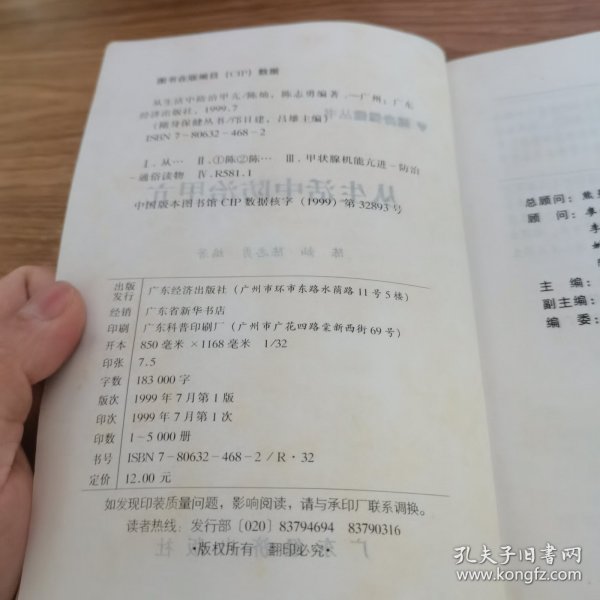 图书在版编目（CIP）数据
从生活中防治甲亢/陈灿，陈志勇编著.—广州：广东
经济出版社，1999.7
（随身保健丛书/邝日建，吕雄主编）
ISBN 7-80632-468-2
Ⅰ.从… Ⅱ.①陈②陈… Ⅲ.甲状腺机能亢进-防治
-通俗读物 Ⅳ.R581.1
中国版本图书馆CIP数据核字（1999）第32893号
从生活中防治甲亢
陈灿 陈志勇 编著
出版
发行 广东经济出版社（广州市环市东路水荫路11号5楼）
经销 广东省新华书店
印刷 广东科普印刷厂（广州市广花四路棠新西街69号）
开本 850毫米×1168毫米 1/32
印张 7.5
字数 183 000字
版次 1999年7月第1版
印次 1999年7月第1次
印数 1~5 000册
书号 ISBN 7-80632-468-2/R·32
定价 12.00元
如发现印装质量问题，影响阅读，请与承印厂联系调换。
读者热线：发行部［020］83794694 83790316
·版权所有 翻印必究·
总顾问：
顾问：
李
主编：
副主编：
编委：
孔夫子旧书网
www.kongfz.com